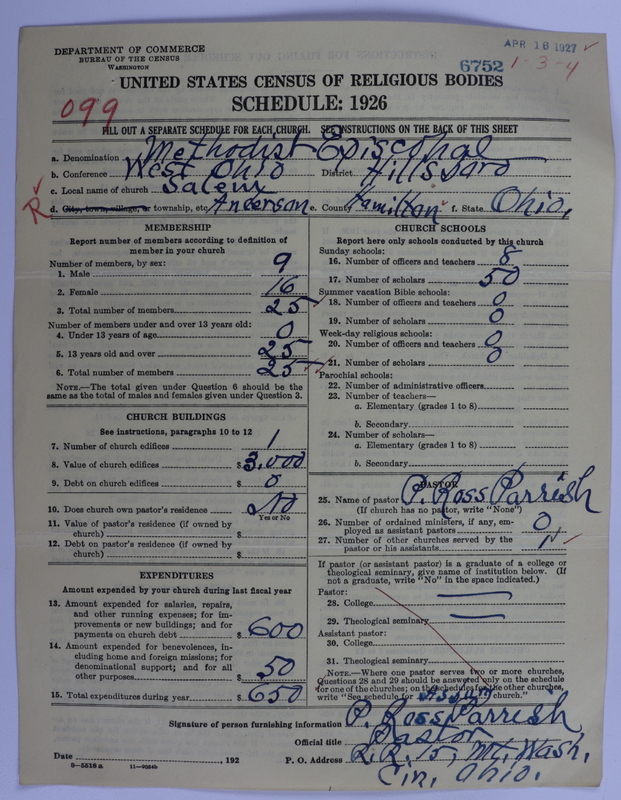 DEPARTMENT OF COMMERCE
BUREAU OF THE CENSUS
WASHINGTON
APR 16 1927
6752 1-3-4
UNITED STATES CENSUS OF RELIGIOUS BODIES
SCHEDULE: 1926
099
FILL OUT A SEPARATE SCHEDULE FOR EACH CHURCH. SEE INSTRUCTIONS ON THE BACK OF THIS SHEET
a. Denomination Methodist Episcopal
b. Conference West Ohio District Hillsboro
c. Local name of church Salem
R d. City, town, village, or township, etc. Anderson e. County Hamilton f. State Ohio.
MEMBERSHIP
Report number of members according to definition of
member in your church
Number of members, by sex:
1. Male 9
2. Female 16
3. Total number of members 25
Number of members under and over 13 years old:
4. Under 13 years of age 0
5. 13 years old and over 25
6. Total number of members 25
NOTE.—The total given under Question 6 should be the
same as the total of males and females given under Question 3.
CHURCH BUILDINGS
See instructions, paragraphs 10 to 12
7. Number of church edifices 1
8. Value of church edifices $3,000
9. Debt on church edifices $ 0
10. Does church own pastor's residence No
Yes or No
11. Value of pastor's residence (if owned by
church) $
12. Debt on pastor's residence (if owned by
church) $
EXPENDITURES
Amount expended by your church during last fiscal year
13. Amount expended for salaries, repairs,
and other running expenses; for im-
provements or new buildings; and for
payments on church debt $ 600
14. Amount expended for benevolences, in-
cluding home and foreign missions; for
denominational support; and for all
other purposes $ 50
15. Total expenditures during year $ 650
CHURCH SCHOOLS
Report here only schools conducted by this church
Sunday schools:
16. Number of officers and teachers 8
17. Number of scholars 50
Summer vacation Bible schools:
18. Number of officers and teachers 0
19. Number of scholars 0
Week-day religious schools:
20. Number of officers and teachers 0
21. Number of scholars 0
Parochial schools:
22. Number of administrative officers
23. Number of teachers—
a. Elementary (grades 1 to 8)
b. Secondary
24. Number of scholars—
a. Elementary (grades 1 to 8)
b. Secondary
PASTOR
25. Name of pastor P. Ross Parrish
(If church has no pastor, write "None")
26. Number of ordained ministers, if any, em-
ployed as assistant pastors 0
27. Number of other churches served by the
pastor or his assistants 1
If pastor (or assistant pastor) is a graduate of a college or
theological seminary, give name of institution below. (If
not a graduate, write "No" in the space indicated.)
Pastor:
28. College
29. Theological seminary
Assistant pastor:
30. College
31. Theological seminary
NOTE.—Where one pastor serves two or more churches,
Questions 28 and 29 should be answered only on the schedule
for one of the churches; on the schedules for the other churches,
write "See schedule for church."
Signature of person furnishing information P. Ross Parrish
Official title Pastor
Date , 192 P. O. Address R.R. 15, Mt. Wash.
Cin, Ohio.
8—5518 a 11—9084b